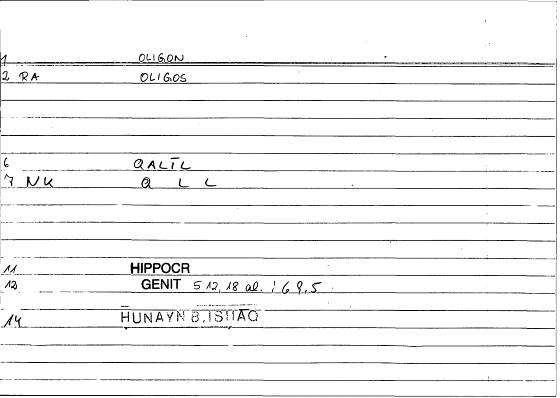 1 OLIGON
2 RA OLIGOS
6 QALĪL
7 NK Q L L
11 HIPPOCR
12 GENIT 5 12, 18 al. : 69.5
14 HUNAYN B. ISHAQ